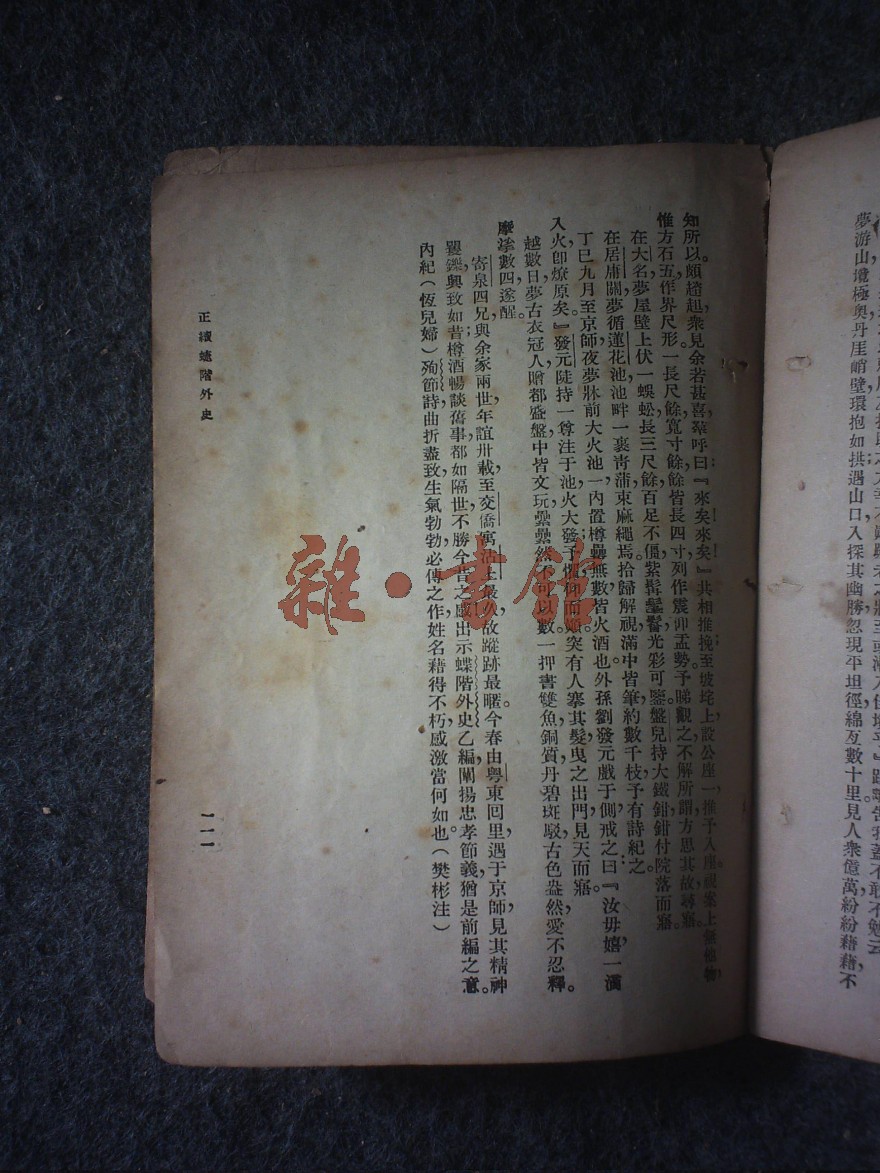 夢游山壒極奧丹厓峭壁環抱如拱遇山口入探其幽勝忽現平坦徑綿亙數十里見人衆億萬紛紛藉藉，不
知所以。頗趦趄衆見余若甚喜羣呼曰『來矣來矣』共相推挽，至坡坨上設公座一推予入座。視案上無他物，
惟方石五作界尺形一長尺餘，寬寸餘，餘皆長四寸列作震卯盂勢予睇觀之不解所謂方思其故，尋寤。
在大名，夢屋壁上伏一蜈蚣長三尺餘，百足不僵，紫髯鬅鬙，光彩可鑒。盤兒持大鐵鉗鉗付院落而寤。
在居庸關，夢循蓮花池，池畔一裹靑蒲束麻繩焉，拾歸解視，滿中皆筆約數千枝，予有詩紀之。
丁巳九月至京師，夜夢牀前大火池一，內置樽罍無數，皆火酒也。外孫劉發元戲于側，戒之曰『汝毋嬉，一滴
入火，卽燎原矣。』發元陡持一尊注于池，火大發，予懼仰而顚，突有人搴其髮曳之出門，見天而寤。
越數日，夢古衣冠人贈都盛盤，中皆文玩，纍纍然不可以數，一押書雙魚，銅質丹碧斑駁，古色盎然，愛不忍釋。
摩挲數四遂醒。
寄泉四兄，與余家兩世年誼卅載至交，僑寓沽上最久，故蹤跡最暱。今春由粤東回里，遇于京師，見其精神
矍鑠，興致如昔，樽酒暢談舊事，都如隔世，不勝今昔之感，出示蝶階外史乙編，闡揚忠孝節義，猶是前編之意。
內紀（恆兒婦）殉節詩，曲折盡致，生氣勃勃，必傳之作，姓名藉得不朽，感激當何如也。（樊彬注）
正續蝶階外史
一一一
雜·書館